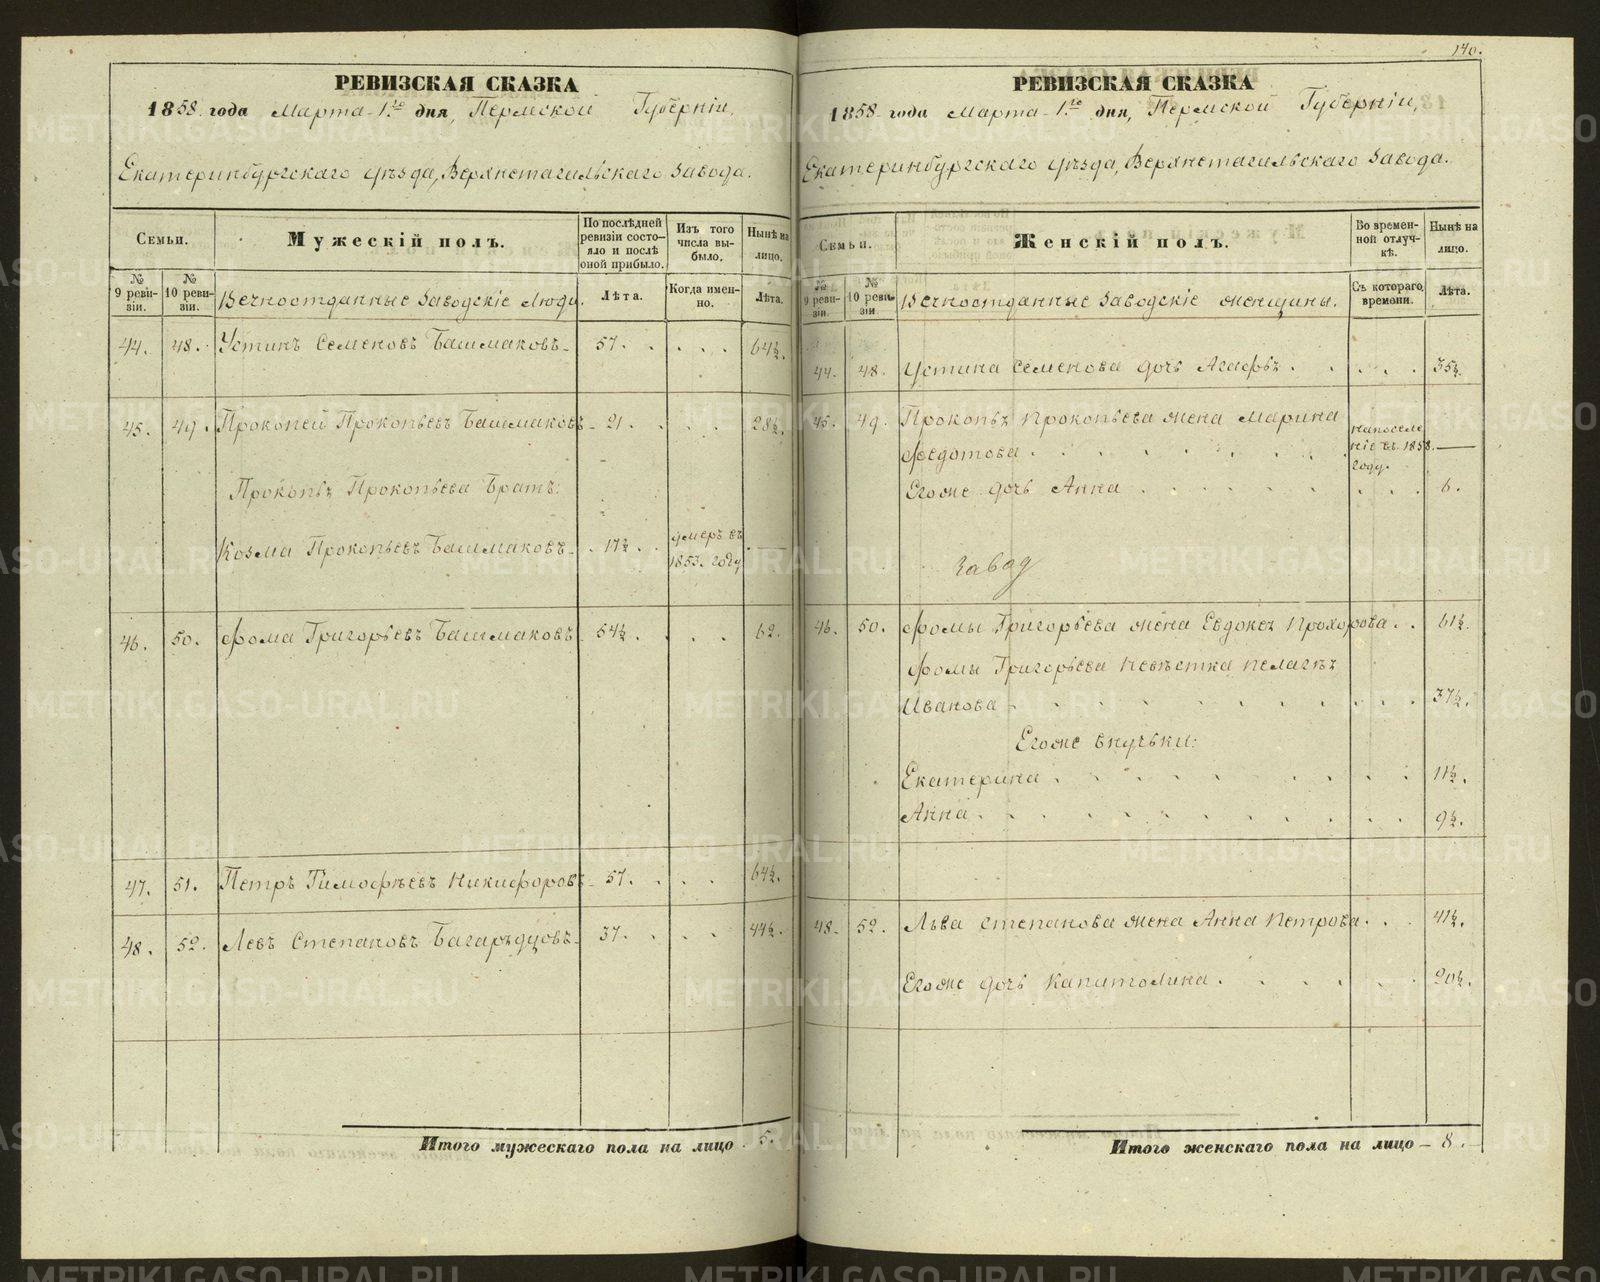 140.
РЕВИЗСКАЯ СКАЗКА
1858 года Марта 1го дня, Пермской Губерніи,
Екатеринбургскаго уѣзда, Верхнетагильскаго завода.
Семьи.
Мужескій полъ.
По послѣдней ревизіи состояло и послѣ оной прибыло.
Изъ того числа выбыло.
Нынѣ на лицо.
№ 9 ревизіи.
№ 10 ревизіи.
Вечноотданные Заводскіе Люди.
Лѣта.
Когда именно.
Лѣта.
44. 48. Устинъ Семеновъ Башмаковъ 57. 64½.
45. 49. Прокопей Прокопьевъ Башмаковъ 21. 28½.
Прокопья Прокопьева Братъ:
Козма Прокопьевъ Башмаковъ 17½. умеръ въ
1853. году
46. 50. Фома Григорьевъ Башмаковъ 54½. 62.
47. 51. Петръ Тимофѣевъ Никифоровъ 57. 64½.
48. 52. Левъ Степановъ Багарядцовъ 37. 44½.
Итого мужескаго пола на лицо 5.
РЕВИЗСКАЯ СКАЗКА
1858 года Марта 1го дня, Пермской Губерніи,
Екатеринбургскаго уѣзда, Верхнетагильскаго завода.
Семьи.
Женскій полъ.
Во временной отлучкѣ.
Нынѣ на лицо.
№ 9 ревизіи.
№ 10 ревизіи
Вечноотданные Заводскіе женщины.
Съ котораго времени.
Лѣта.
44. 48. Устина Семенова дочь Агафья 35½.
45. 49. Прокопья Прокопьева жена Марина
Федотова напоселеніе въ 1858. году. —
Егоже дочь Анна 6.
завод
46. 50. Фомы Григорьева жена Евдокея Прохорова 61½.
Фомы Григорьева невѣстка Пелагея
Иванова 37½.
Егоже внучьки:
Екатерина 11½.
Анна 9½.
48. 52. Льва Степанова жена Анна Петрова 41½.
Егоже дочь Капитолина 20½.
Итого женскаго пола на лицо — 8.
METRIKI.GASO-URAL.RU